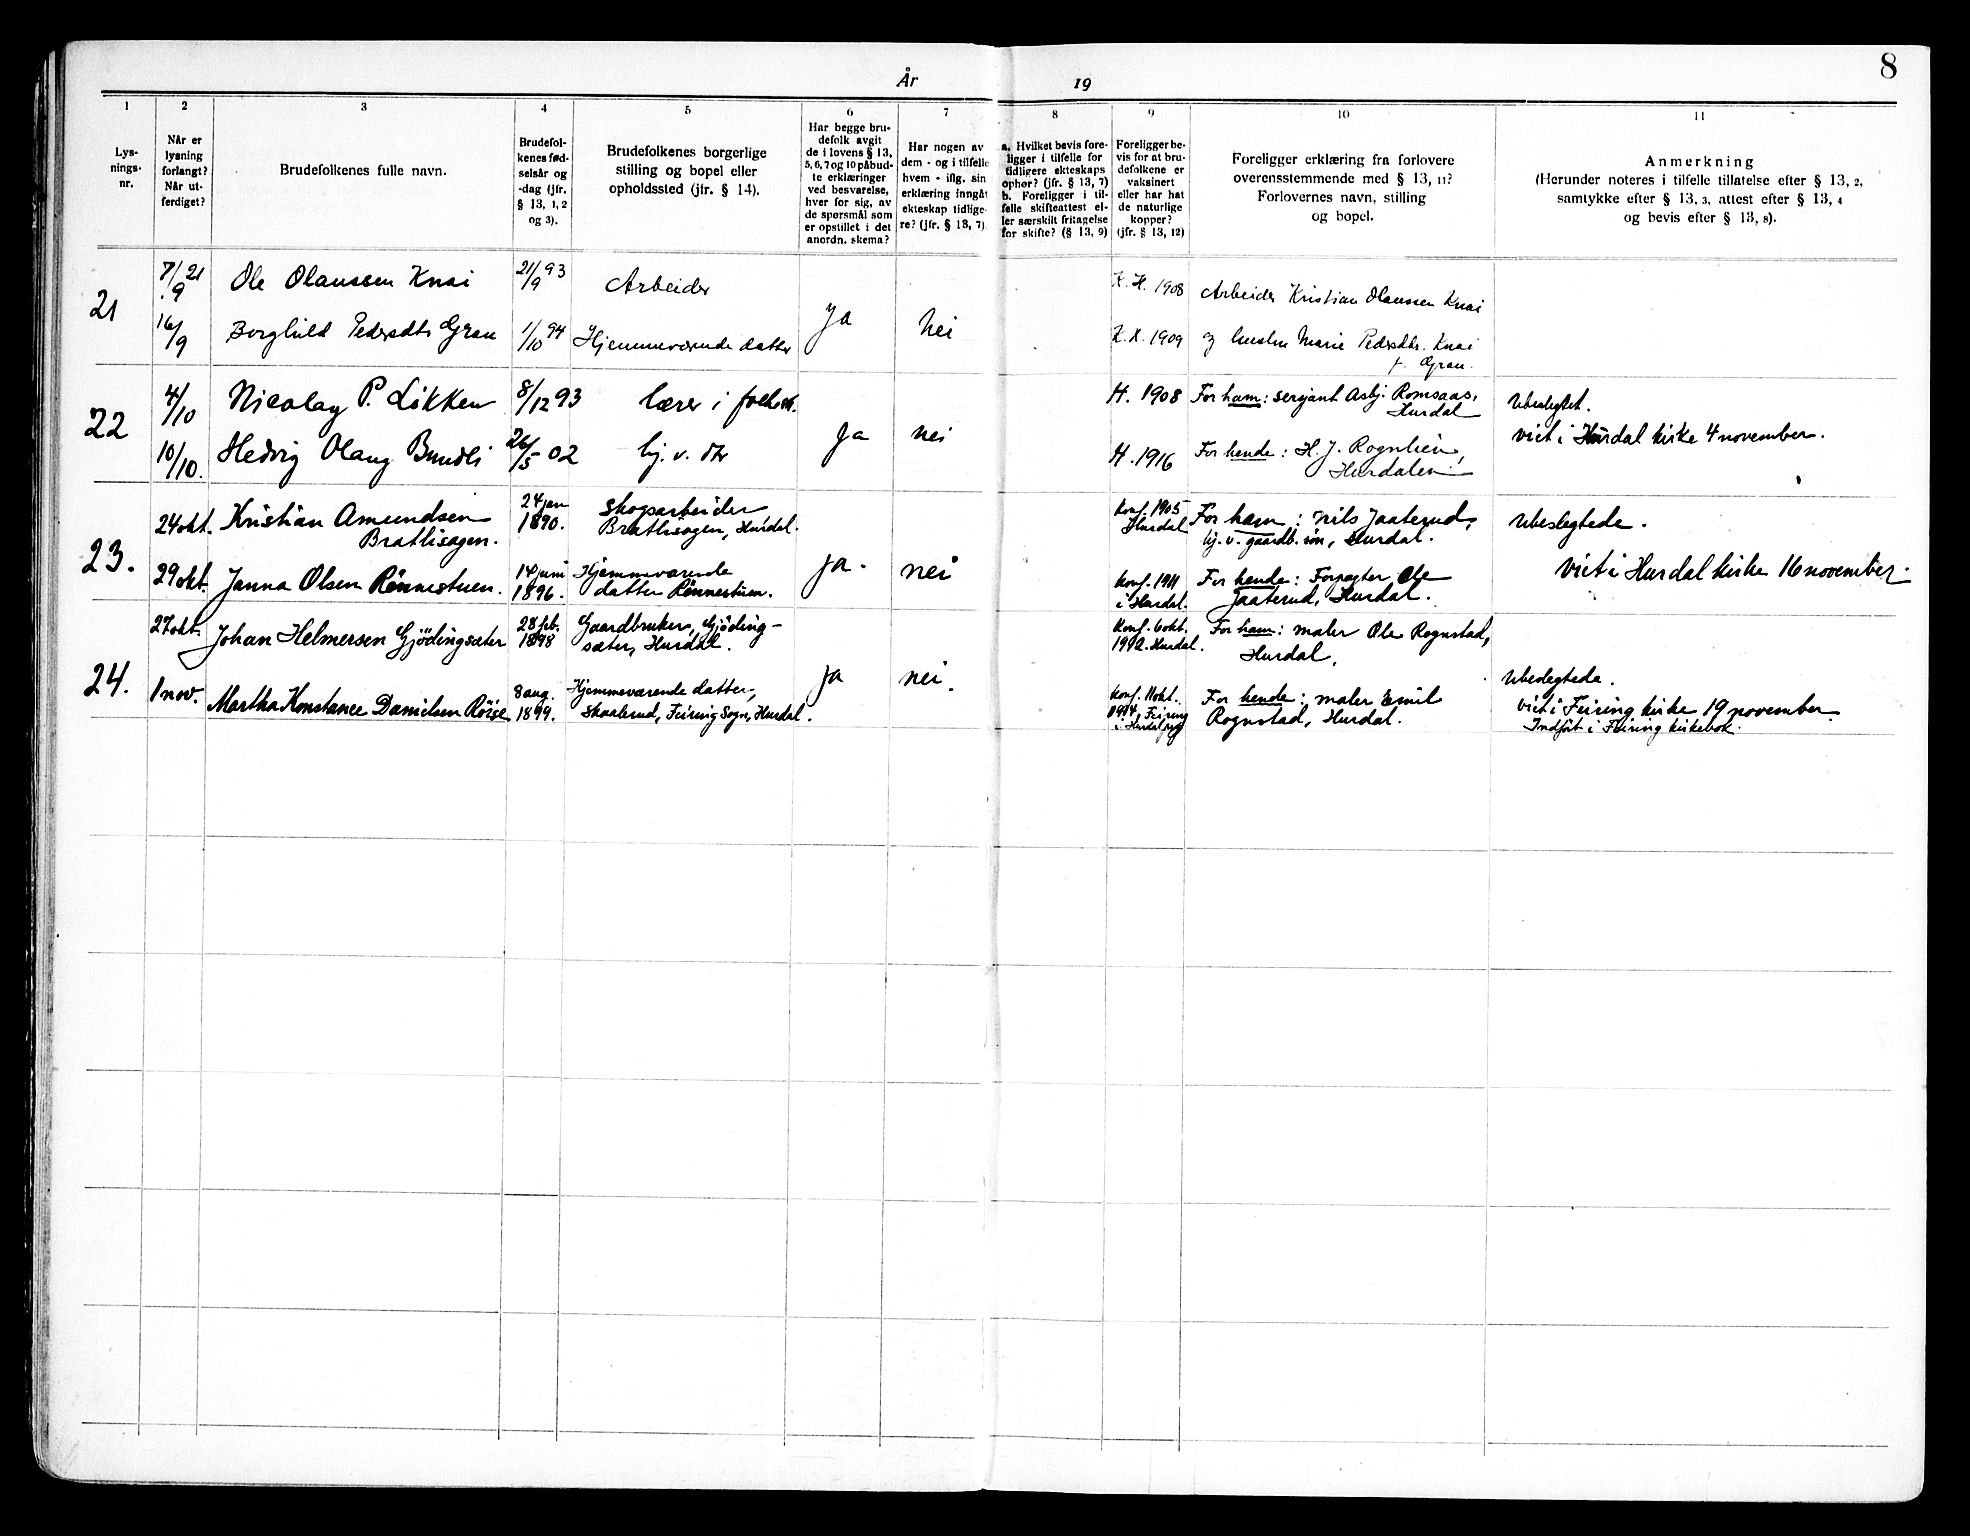 8
År 19
1 2 3 4 5 6 7 8 9 10 11
Lys-
nings-
nr.
Når er
lysning
forlangt?
Når ut-
ferdiget?
Brudefolkenes fulle navn.
Brudefol-
kenes fød-
selsår og
-dag (jfr.
§ 13, 1, 2
og 3).
Brudefolkenes borgerlige
stilling og bopel eller
opholdssted (jfr. § 14).
Har begge bru-
defolk avgit
de i lovens § 13,
5, 6, 7 og 10 påbud-
te erklæringer
ved besvarelse,
hver for sig, av
de spørsmål som
er opstillet i det
anordn. skema?
Har nogen av
dem - og i tilfelle
hvem - iflg. sin
erklæring inngåt
ekteskap tidlige-
re? (jfr. § 13, 7).
a. Hvilket bevis fore-
ligger i tilfelle for
tidligere ekteskaps
ophør? (jfr. § 13, 7)
b. Foreligger i til-
felle skifteattest el-
ler særskilt fritagelse
for skifte? (§ 13, 9)
Foreligger be-
vis for at bru-
defolkene er
vaksinert
eller har hat
de naturlige
kopper?
(jfr. § 13, 12)
Foreligger erklæring fra forlovere
overensstemmende med § 13, 11?
Forlovernes navn, stilling
og bopel.
Anmerkning
(Herunder noteres i tilfelle tillatelse efter § 13, 2,
samtykke efter § 13, 3, attest efter § 13, 4
og bevis efter § 13, 8).
21
7/9 21
16/9
Ole Olaussen Knai
Borghild Pedersdtr Gran
21/9 93
1/10 94
Arbeider
Hjemmeværende datter
Ja
Nei
K. H. 1908
K. H. 1909
Arbeider Kristian Olaussen Knai
og hustru Marie Pedersdtr. Knai
f. Gran.
22
4/10
10/10.
Nicolay P. Løkken
Hedvig Olaug Bundli
8/12 93
26/5 02
lærer i folkesk.
hj. v. dtr
Ja
nei
H. 1908
H. 1916
For ham: sersjant Asbj. Romsaas,
Hurdal
For hende: H. J. Rognlien,
Hurdalen
Ubeslegtet.
viet i Hurdal kirke 4 november.
23.
24 okt.
29 okt.
Kristian Amundsen
Bratlisagen.
Janna Olsen Rönnestuen.
24 jan
1890.
14 juni
1896.
Skogsarbeider
Bratlisagen, Hurdal.
Hjemmeværende
datter Rönnestuen.
Ja.
nei
Konf. 1905
Hurdal
Konf. 1911
i Hurdal.
For ham: Nils Jaaterud,
hj. v. gaardb. søn, Hurdal.
For hende: Forpagter, Ole
Jaaterud, Hurdal.
Ubeslegtede.
Viet i Hurdal kirke 16 november.
24.
27 okt.
1 nov.
Johan Helmersen Gjödingsæter
Martha Konstance Danielsen Röise
28 feb.
1898
8 aug.
1899.
Gaardbruker, Gjöding-
sæter, Hurdal.
Hjemmeværende datter,
Skaalerud, Feiring Sogn, Hurdal.
Ja
nei.
Konf. 6 okt.
Hurdal.
Konf. 11 okt.
1914, Feiring
i Hurdal prg
For ham: maler Ole Rognstad,
Hurdal.
For hende: maler Emil
Rognstad, Hurdal.
Ubeslegtede.
viet i Feiring kirke 19 november.
Indfört i Feiring kirkebok.